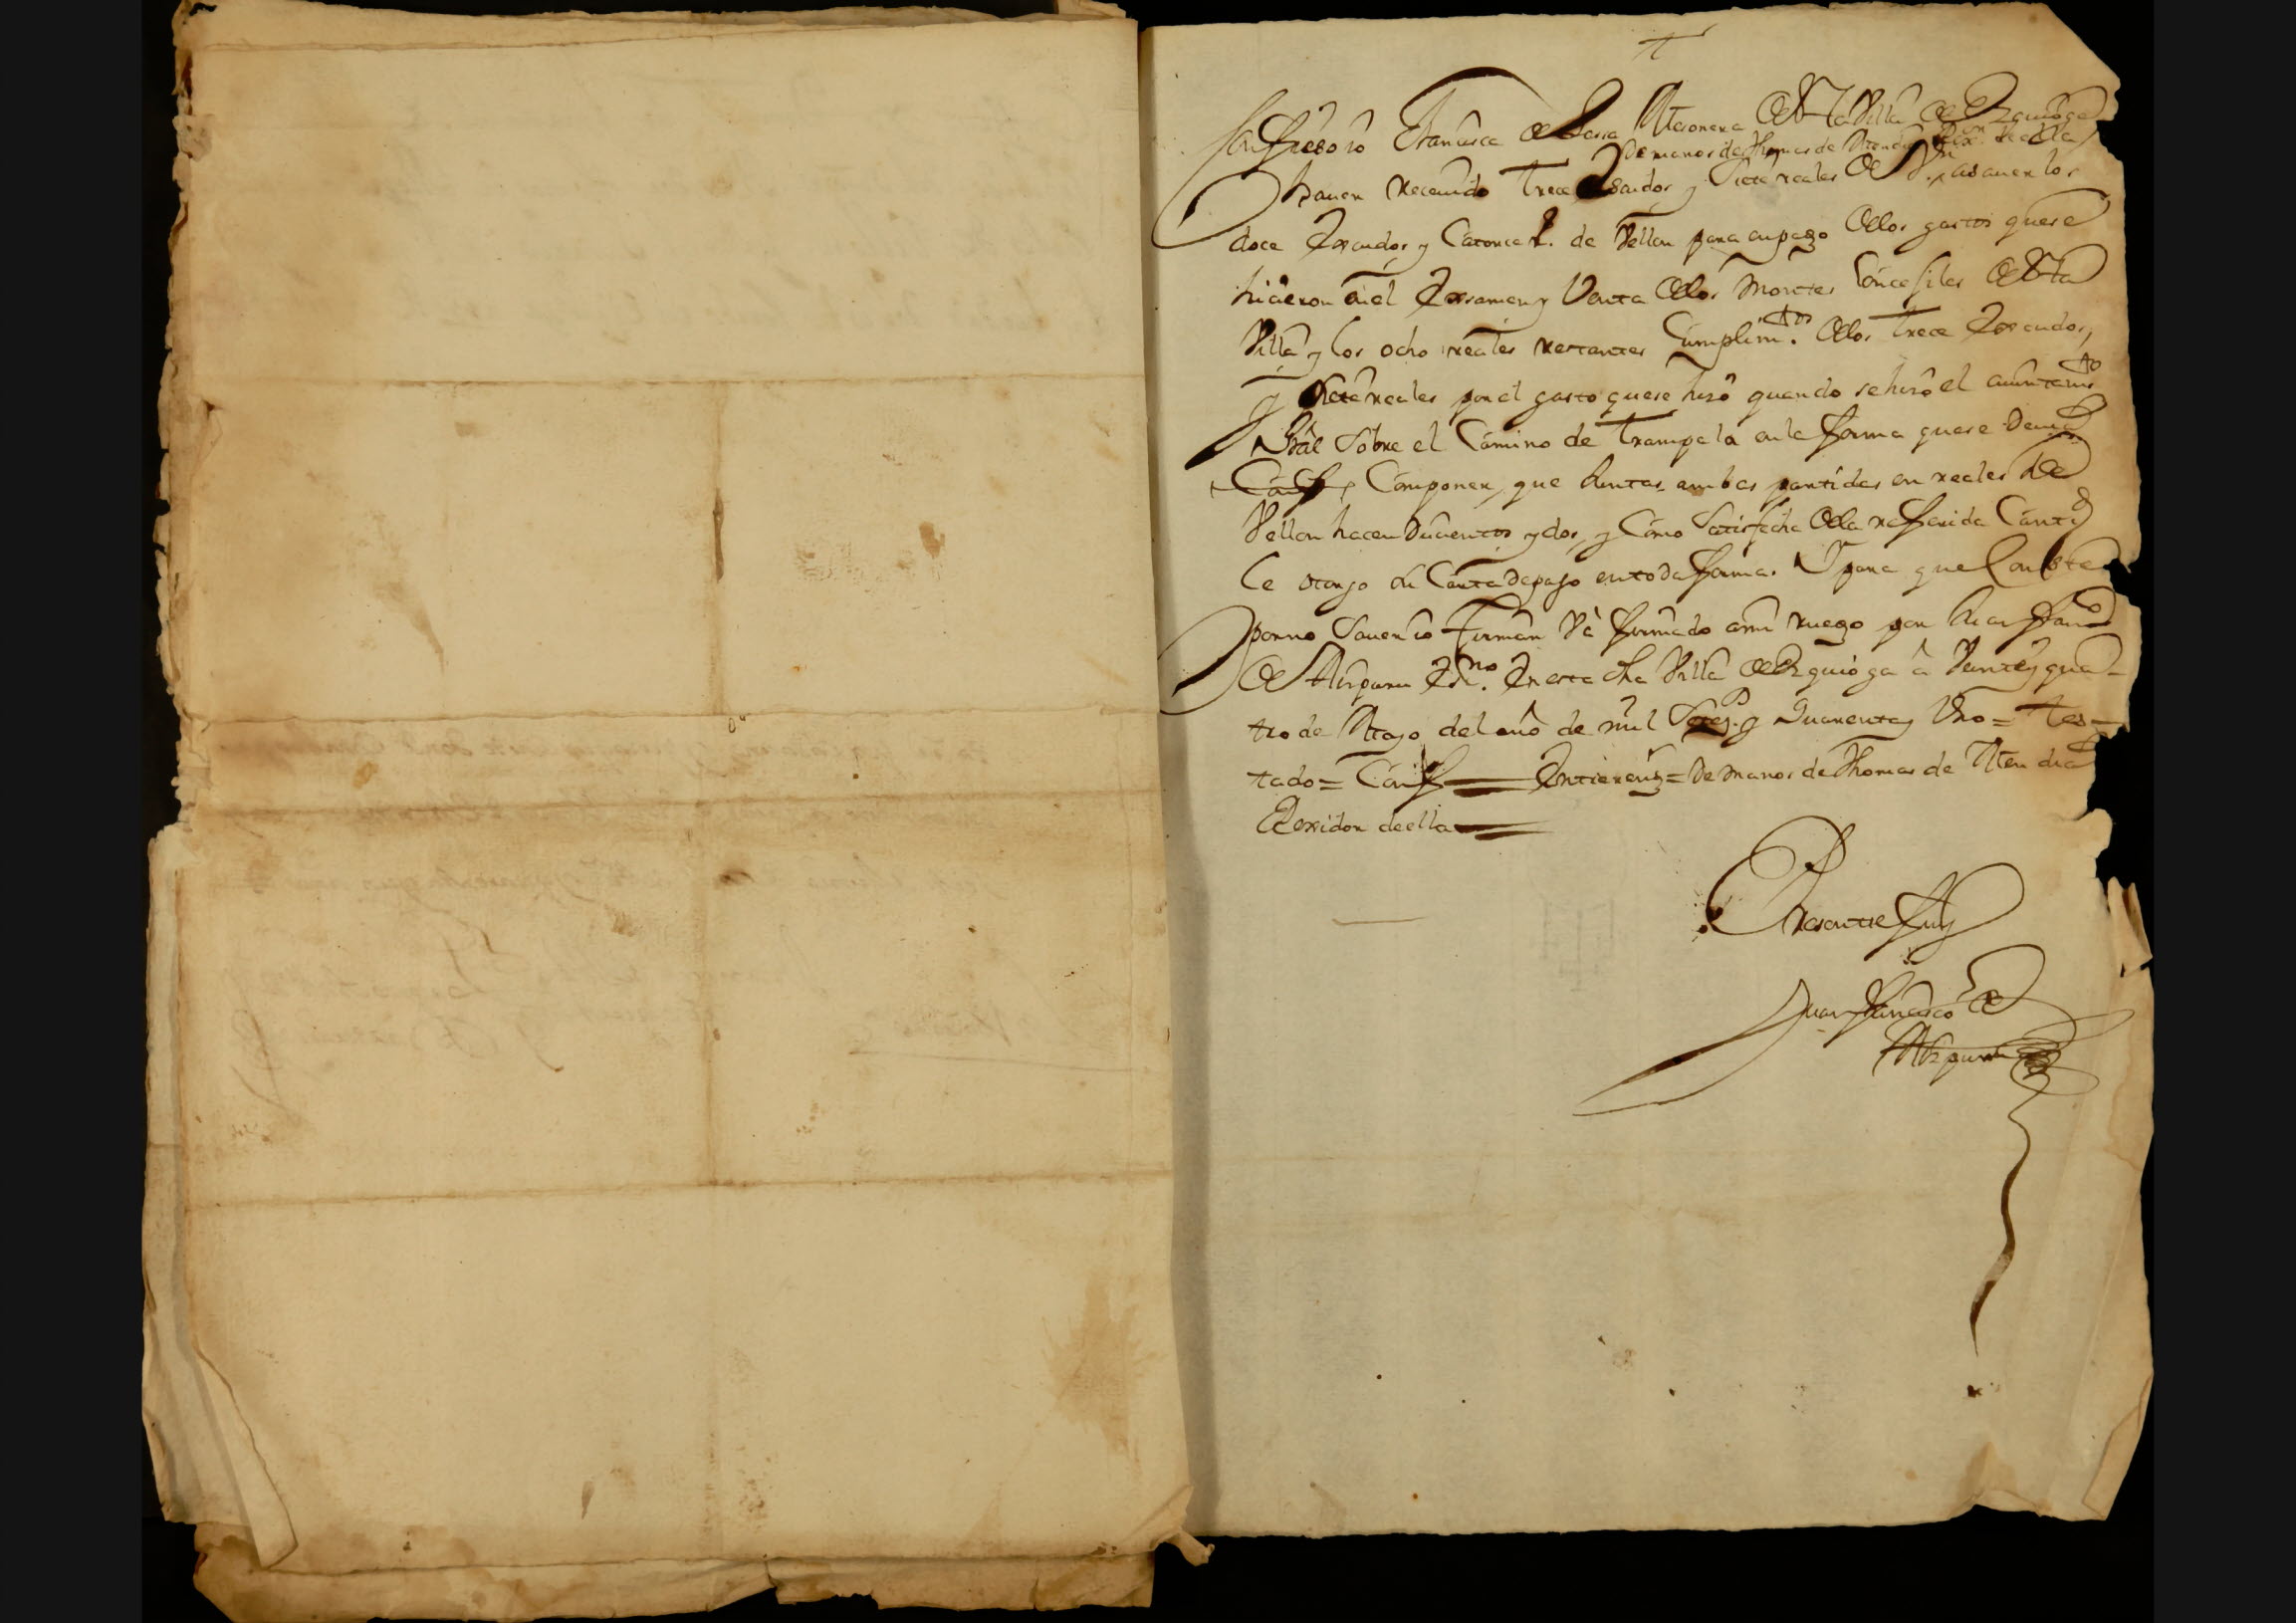 Confieso io Francisca de Mesonera de esta Villa de Ezquioga
de manos de Thomas de Mendia Rexor de ella
haver Recevido trece Escudos y Siete reales de Vn. asaver los
doce Escudos y Catorce Rs. de Vellon para en pago de los gastos que se
hicieron en el Exsamen y Venta de los Montes Concejiles de esta
Villa y los ocho reales restantes Cumplimto. de los trece Escudos,
y siete reales por el gasto que se hizo quando se hizo el aiuntamto
Gral Sobre el Camino de en la forma que se Devia
Componer, que Juntas ambas partidas en reales de
Vellon hacen Ducientos y dos, y Como Satisfecha de la refferida Cantd
le otorgo su Carta de pago en toda forma. Y para que Conste
por no Saver io Firmar Va firmado a mi ruego por Juan Franco
de Aizpuru Esno. En esta dha Villa de Ezquioga a Veinte y qua-
tro de Mayo del año de mil Setezs. y Quarenta y Uno = Tes-
tado = = Entrerengs = De manos de Thomas de Mendia
Rexidor de ella
Presente fui
Juan Francisco de
Aizpuru